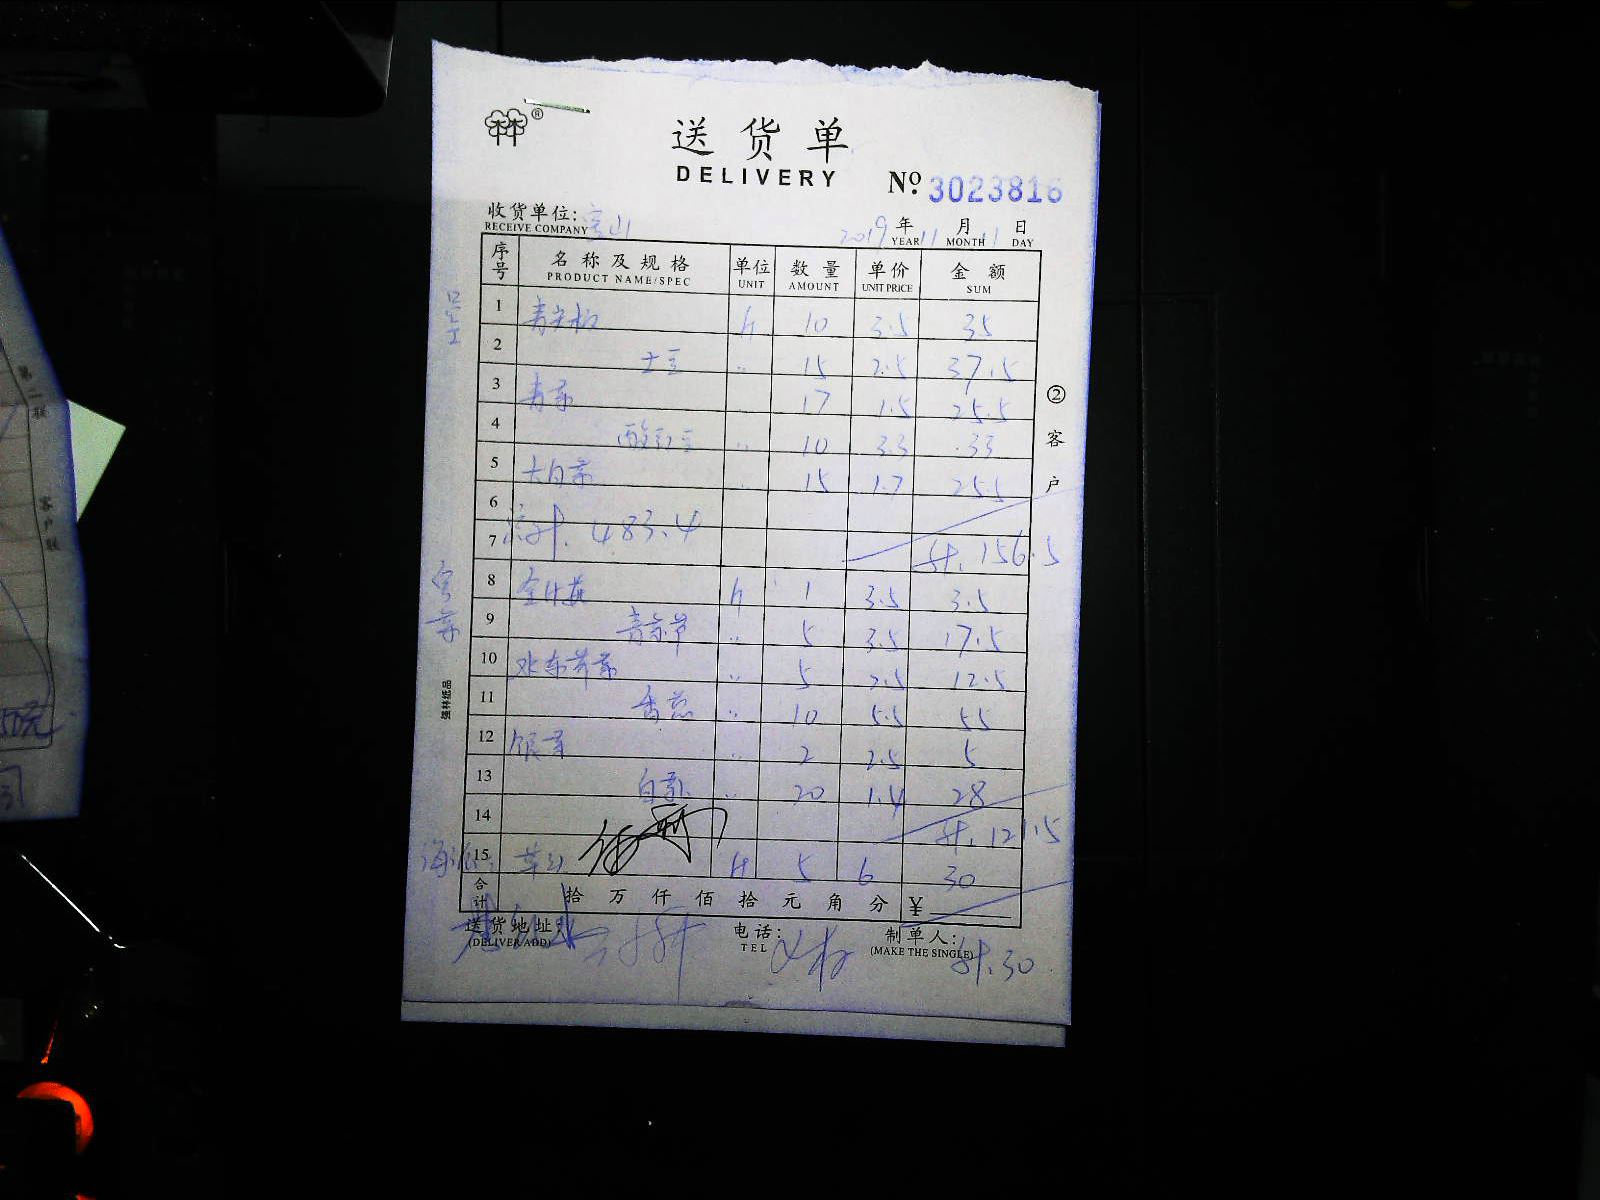 送货单
DELIVERY
№ 3023816
收货单位: 宝山 2019年11月11日
RECEIVE COMPANY YEAR MONTH DAY
序号 名称及规格 单位 数量 单价 金额
PRODUCT NAME/SPEC UNIT AMOUNT UNIT PRICE SUM
员工
1 青尖椒 斤 10 3.5 35
2 土豆 〃 15 2.5 37.5
3 青菜 17 1.5 25.5
4 酸豇豆 〃 10 3.3 33
5 大白菜 15 1.7 25.5
6
7 483.4 计.156.5
8 金针菇 斤 1 3.5 3.5
9 5 3.5 17.5
10 水东芥菜 〃 5 2.5 12.5
11 香葱 〃 10 5.5 55
12 银芽 2 2.5 5
13 白萝卜 〃 20 1.4 28
14 计.121.5
15 斤 5 6 30
合计 拾万仟佰拾元角分 ¥
送货地址: 电话: 制单人:
(DELIVER ADD) TEL (MAKE THE SINGLE)
计.30
②客户
强林纸品
第一联
客户联